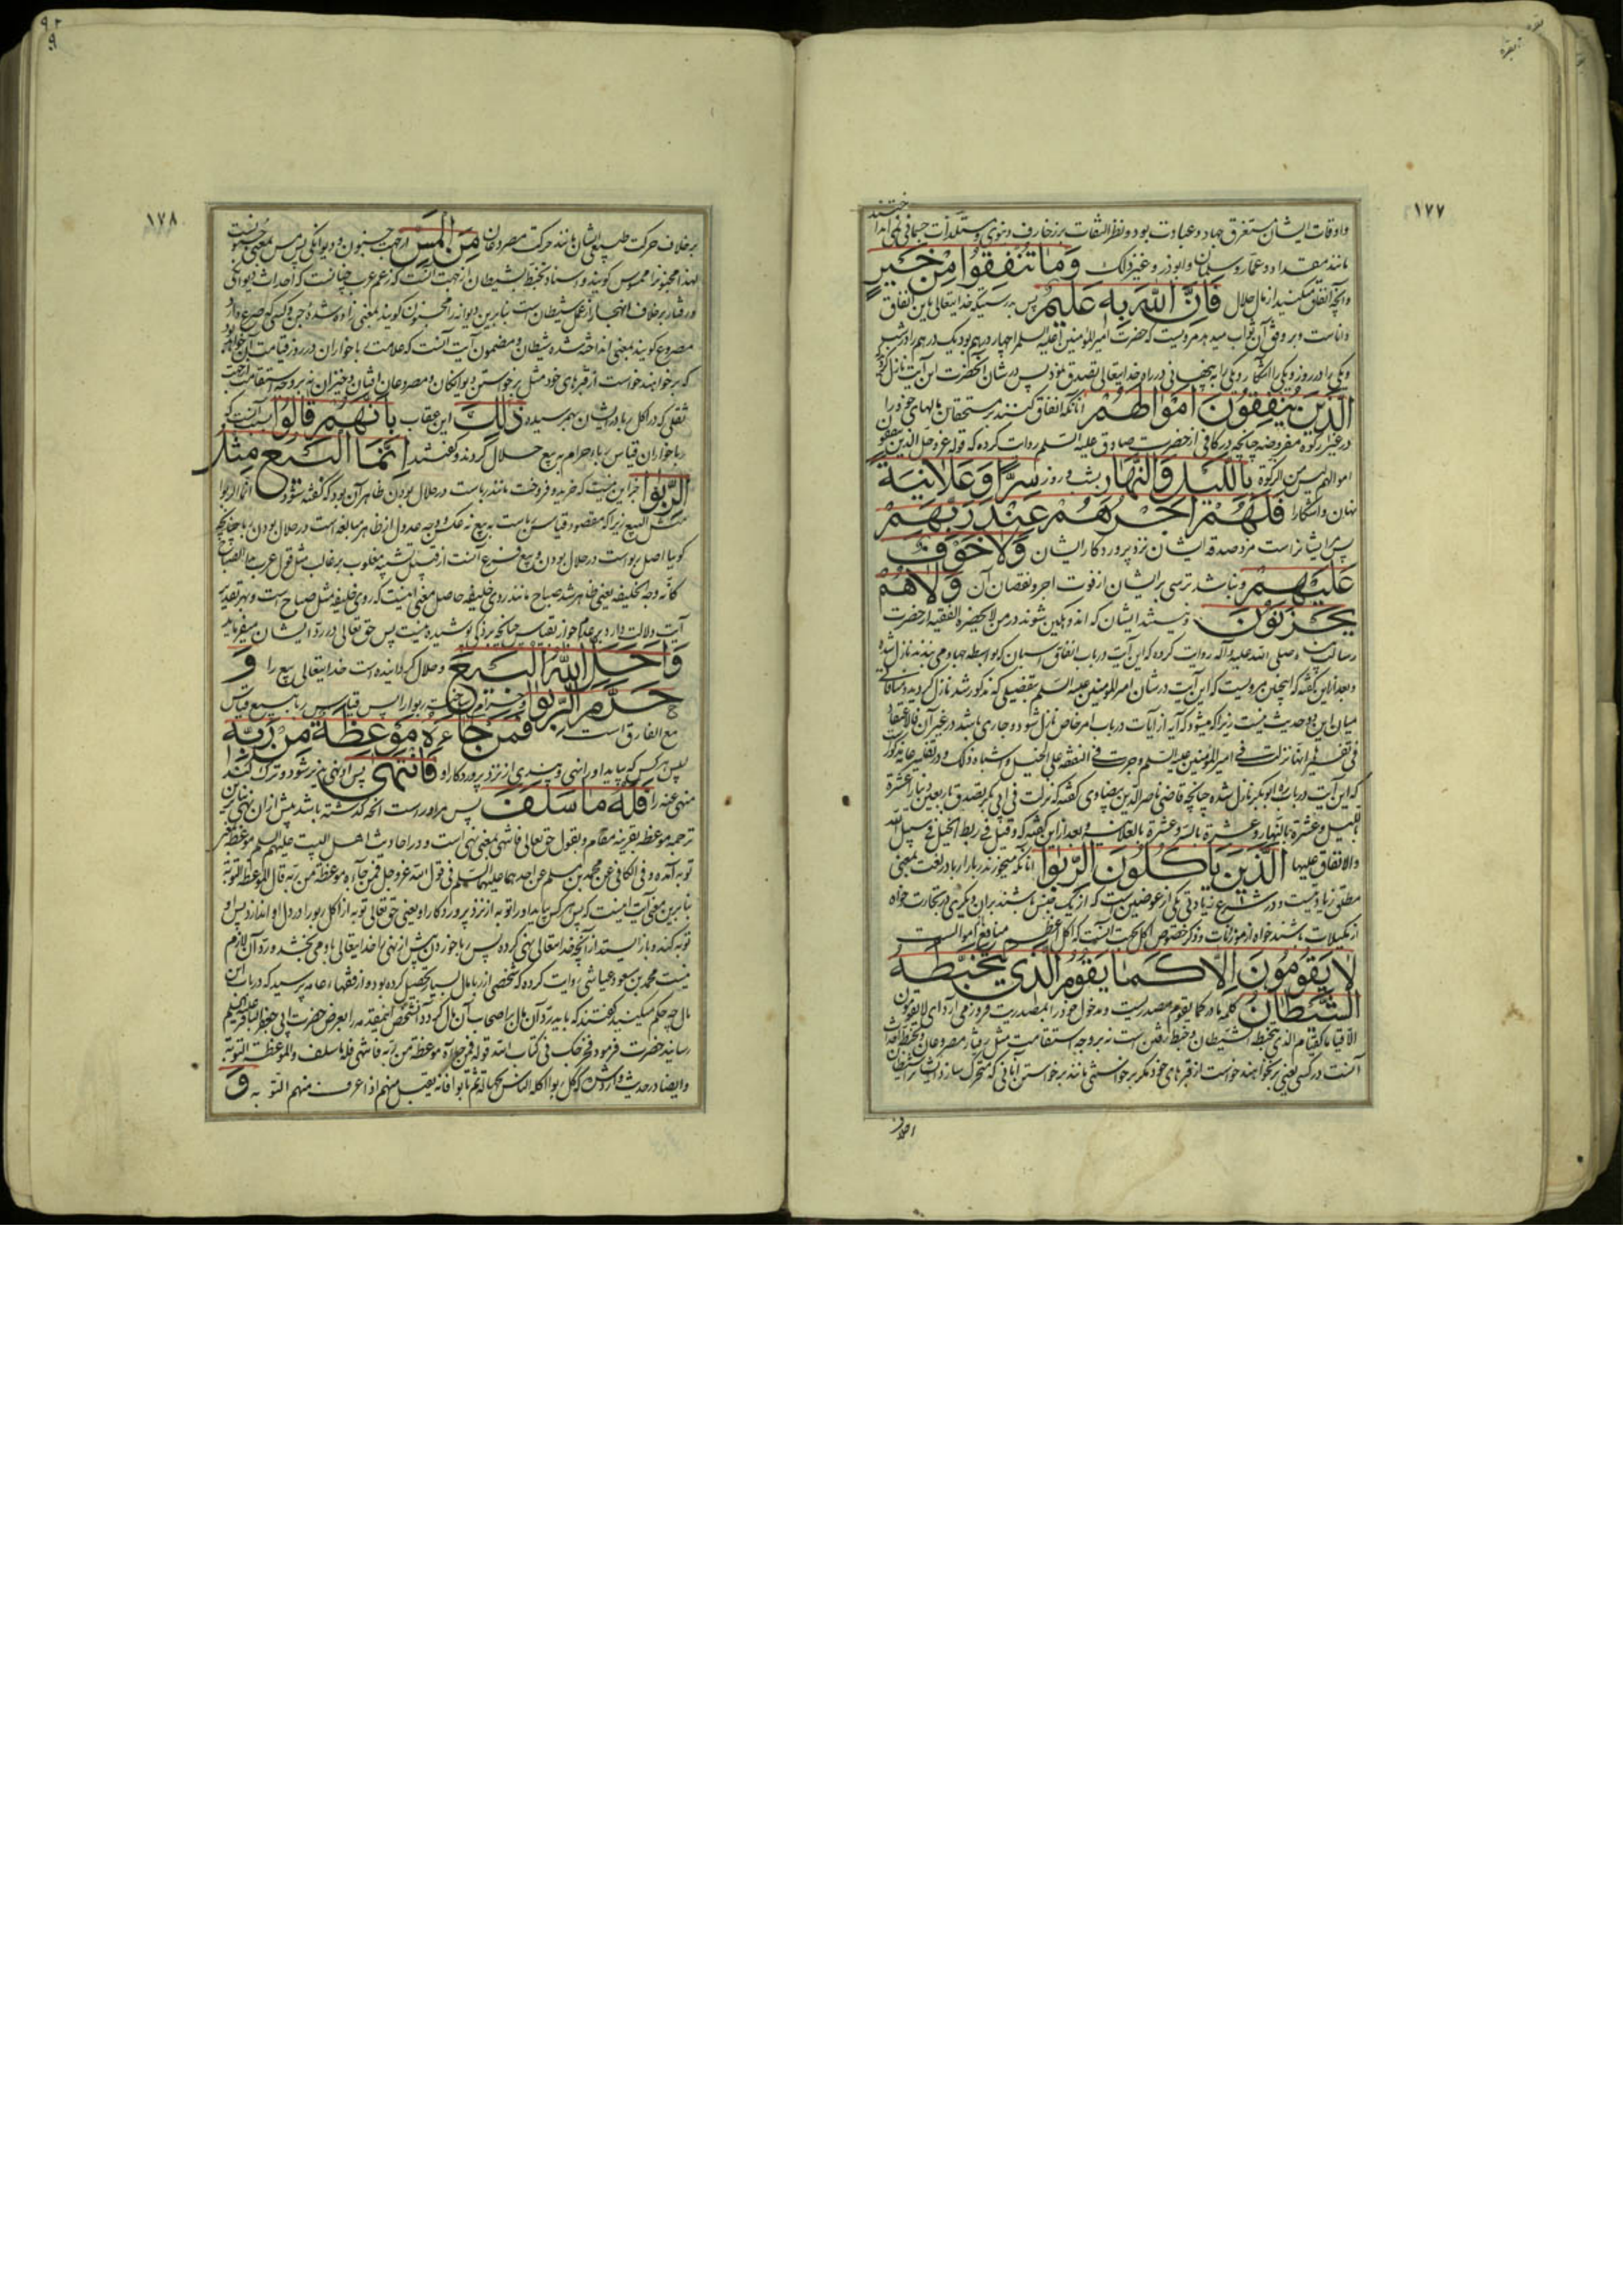 ۱۷۷
واوقات ایشان مستغرق جهاد وعبادت بود ونظر التفات بر زخارف دنیوی ومستلذات جسمانی نمی انداختند
مانند مقداد وعمار وسلمان وابوذر وغیر ذلک وَمَا تُنْفِقُوا مِنْ خَيْرٍ
وانچه انفاق میکنید از مال حلال فَاِنَّ اللّٰهَ بِهِ عَلِيمٌ پس بدرستیکه خدایتعالی باین انفاق
داناست وبر وفق آن ثواب میدهد مرویست که حضرت امیرالمؤمنین علیه السلم را چهار درهم بود یک درهم را در شب
ویکی را در روز ویکی را آشکار ویکی را به پنهانی در راه خدایتعالی تصدق نمود پس در شان آنحضرت این آیت نازل کردید
الَّذِينَ يُنْفِقُونَ اَمْوَالَهُمْ انانکه انفاق کنند بر مستحقان مالهای خود را
در غیر زکوة مفروضه چنانچه در کافی از حضرت صادق علیه السلم روایت کرده که قوله عز وجل الذین ینفقون
اموالهم لیس من الزکوة بِاللَّيْلِ وَالنَّهَارِ بشب وروز سِرًّا وَعَلَانِيَةً
نهان واشکارا فَلَهُمْ اَجْرُهُمْ عِنْدَ رَبِّهِمْ
پس برای ایشانراست مزد صدقه ایشان نزد پروردکار ایشان وَلَا خَوْفٌ
عَلَيْهِمْ ونباشد ترسی بر ایشان از فوت اجر ونقصان آن وَلَا هُمْ
يَحْزَنُونَ ونیستند ایشان که اندوهکین شوند در من لا یحضره الفقیه از حضرت
رسالت پناه صلی الله علیه وآله روایت کرده که این آیت در باب انفاق اسبان که بواسطه جهاد می بندند نازل شده
وبعد از این کفته که همچنین مرویست که این آیت در شان امیرالمؤمنین علیه السلم بتفضیلی که مذکور شد نازل کردیده ومنافاتی
میان این دو حدیث نیست زیرا که میشود که آیه از آیات در باب امر خاص نازل شود وجاری باشد در غیر آن
فی تفسیرها انها نزلت فی امیرالمؤمنین علیه السلم وجرت فی النفقة علی الخیل واشباه ذلک ودر تفسیر عامه مذکور
که این آیت در باب ابوبکر نازل شده چنانچه قاضی ناصرالدین بیضاوی کفته که نزلت فی ابی بکر تصدق باربعین دینار عشرة
باللیل وعشرة بالنهار وعشرة بالسر وعشرة بالعلانیة وبعد از این کفته که وقیل فی ربط الخیل فی سبیل الله
والانفاق علیها الَّذِينَ يَأْكُلُونَ الرِّبٰوا انانکه میخورند ربا را ربا در لغت بمعنی
مطلق زیادتیست ودر شرع زیادتی یکی از عوضین است که از یک جنس باشند بران دیکری در تجارت خواه
از مکیلات باشند خواه از موزونات وذکر خصوص اکل بجهت آنست که اکل اعظم منافع اموالست
لَا يَقُومُونَ اِلَّا كَمَا يَقُومُ الَّذِي يَتَخَبَّطُهُ
الشَّيْطَانُ کلمه ما در کما یقوم مصدریست ومدخول خود را بمصدریت فرو می آرد ای لا یقومون
الا قیاما کقیام الذی یتخبطه الشیطان وخبط رفتن است نه بر وجه استقامت مثل رفتار مصروعان وتخبط احداث
آنست در کسی یعنی برنخواهند خواست از قبرهای خود مکر برخواستنی مانند برخواستن آنانی که متحرک سازد ایشانرا شیطان
برخلاف
۱۷۸
برخلاف حرکت طبیعی ایشان مانند حرکت مصروعان مِنَ الْمَسِّ از جهت جنون ودیوانکی پس مس بمعنی جنونست
لهذا مجنونرا ممسوس کویند واسناد تخبط بشیطان از جهت آنست که زعم عرب چنانست که احداث دیوانکی
ورفتار برخلاف انهنجار از عمل شیطان است بنابرین دیوانه را مجنون کویند بمعنی زده شده جن وکسی که صرع دارد
مصروع کویند بمعنی انداخته شده شیطان ومضمون آیت آنست که علامت ربا خواران در روز قیامت این خواهد بود
که برخواهند خواست از قبرهای خود مثل برخواستن دیوانکان ومصروعان افتان وخیزان نه بر وجه استقامت از جهت
ثقلی که در اکل ربا در ایشان بهم رسیده ذٰلِكَ این عقاب بِاَنَّهُمْ قَالُوا بسبب آنست که
ربا خواران قیاس ربا حرام به بیع حلال کردند وکفتند اِنَّمَا الْبَيْعُ مِثْلُ
الرِّبٰوا جز این نیست که خرید وفروخت مانند رباست در حلال بودن ظاهر آن بود که کفته شود انما الربوا
مثل البیع زیرا که مقصود قیاس رباست به بیع نه عکس ووجه عدول از ظاهر مبالغه است در حلال بودن ربا چنانچه
کویا اصل ربواست در حلال بودن وبیع فرع آنست از قبیل تشبیه مغلوب بر غالب مثل قول عرب بدا الصباح
کانه وجه الخلیفه یعنی ظاهر شد صباح مانند روی خلیفه حاصل معنی اینست که روی خلیفه مثل صباح است وبهر تقدیر
آیت دلالت دارد بر عدم جواز قیاس چنانچه بر ذکی پوشیده نیست پس حق تعالی در رد ایشان میفرماید
وَاَحَلَّ اللّٰهُ الْبَيْعَ وحلال کردانیده است خدایتعالی بیع را وَ
حَرَّمَ الرِّبٰوا وحرام ساخته ربوا را پس قیاس ربا به بیع قیاس
مع الفارق است فَمَنْ جَاءَهُ مَوْعِظَةٌ مِنْ رَبِّهِ
پس هر کس که بیاید او را نهی وپندی از نزد پروردکار او فَانْتَهٰى پس او نهی پذیر شود وترک کند
منهی عنه را فَلَهُ مَا سَلَفَ پس مر اوراست انچه کذشته باشد پیش از ان نهی
ترجمه موعظه بقرینه مقام وبقول حق تعالی فانتهی بمعنی نهی است ودر احادیث اهل البیت علیهم السلم موعظه
توبه آمده وفی الکافی عن محمد بن مسلم عن احدهما علیهما السلم فی قول الله عز وجل فمن جاءه موعظة من ربه قال الموعظة التوبة
بنابرین معنی آیت اینست که پس هر کس بیاید او را توبه از نزد پروردکار او یعنی حق تعالی توبه از اکل ربوا را در دل او اندازد پس او
توبه کند وباز ایستد از آنچه خدایتعالی نهی کرده پس ربا خوردن پیش از نهی را خدایتعالی باو می بخشد ورد آن لازم
نیست محمد بن مسعود عیاشی روایت کرده که شخصی از ربا مال بسیار تحصیل کرده بود واز فقهاء عامه پرسید که در باب این
مال چه حکم میکنید کفتند که باید رد آن مال بر اصحاب آن مال کرد آن شخص این مقدمه را بعرض حضرت ابی جعفر الباقر علیه السلم
رسانید حضرت فرمود مخرجک فی کتاب الله قوله فمن جاءه موعظة من ربه فانتهی فله ما سلف والموعظة التوبة
وایضا در حدیث وارد شده که کل ربوا اکله الناس بجهالة ثم تابوا فانه یقبل منهم اذا عرف منهم التوبه وَ